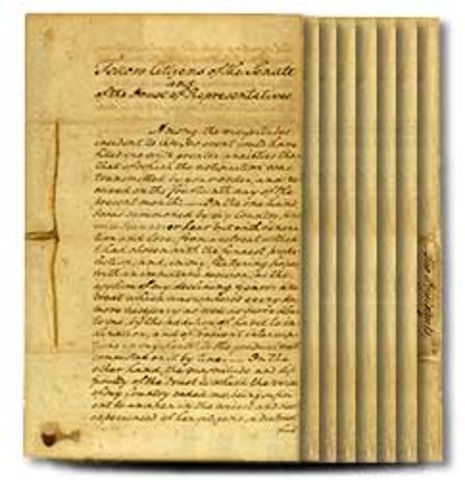 Fellow Citizens of the Senate
and
of the House of Representatives
Among the vicissitudes
incident to life, no event could have
filled me with greater anxieties than
that of which the notification was
transmitted by your order, and re
ceived on the fourteenth day of the
present month. — On the one hand,
I was summoned by my Country,
voice I can never hear but with venera
tion and love, from a retreat which
I had chosen with the fondest predi
lection, and, in my flattering hopes,
with an immutable decision, as the
asylum of my declining years: a re
treat which was rendered every day
more necessary as well as more dear
to me, by the addition of habit to in
clination, and of frequent interrup
tions in my health to the gradual waste
committed on it by time. — On the
other hand, the magnitude and dif
ficulty of the trust to which the voice
of my Country called me, being suffi
cient to awaken in the wisest and most
experienced of her citizens, a distrust